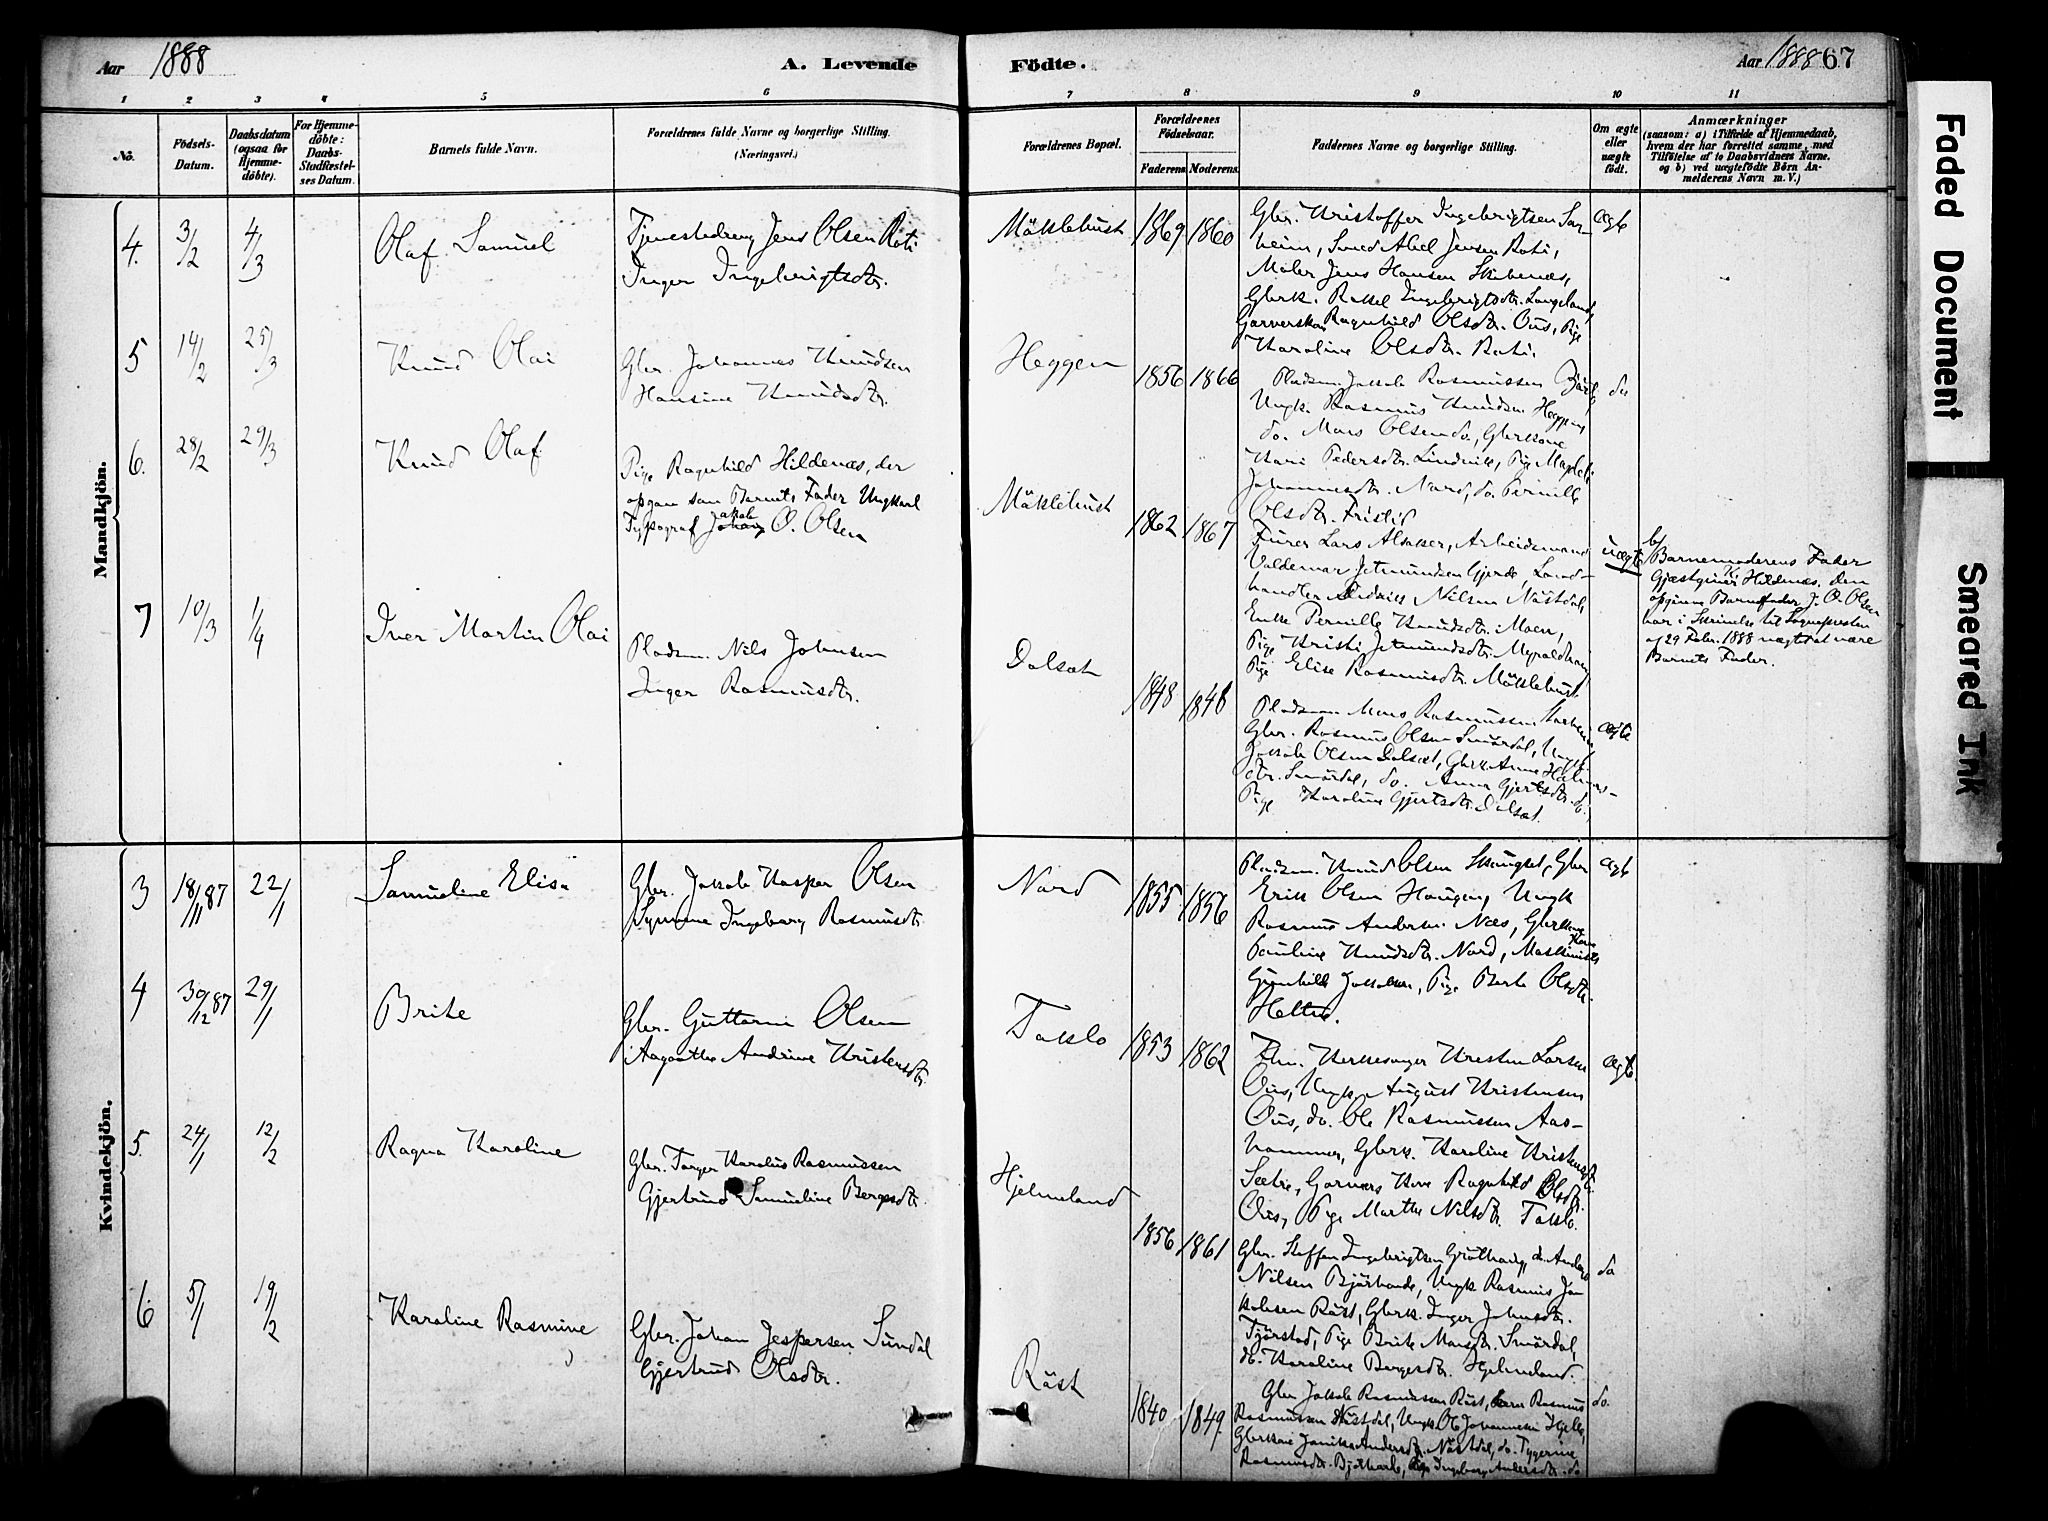 Aar 1888
A. Levende
Födte.
Aar 1888
67
1 2 3 4 5 6
7 8 9 10 11
No.
Födsels-
Datum.
Daabsdatum
(ogsaa for
Hjemme-
döbte).
For Hjemme-
döbte:
Daabs-
Stadfæstel-
ses Datum.
Barnets fulde Navn.
Forældrenes fulde Navne og borgerlige Stilling.
(Næringsvei.)
Forældrenes Bopæl.
Forældrenes
Födselsaar.
Faderens
Moderens
Faddernes Navne og borgerlige Stilling.
Om ægte
eller
uægte
födt.
Anmærkninger
(saasom: a) i Tilfælde af Hjemmedaab,
hvem der har forrettet samme, med
Tilföielse af to Daabsvidners Navne,
og b) ved uægtefödte Börn An-
melderens Navn m. V.)
Mandkjön.
4. 3/2 4/3 Olaf Samuel
Tjenestedreng Jens Olsen Roti
Inger Ingebrigtsdtr.
Möklebust 1869 1860
Gbr. Kristoffer Ingebrigtsen Sar-
heim, Smed Abel Jensen Roti,
Maler Jens Hansen
Gbrk. Rakel Ingebrigtsdtr. Langeland,
Garverskone Ragnhild Olsdtr. Ous, Pige
Karoline Olsdtr. Roti.
ægte
5 14/2 25/3 Knud Olai
Gbr. Johannes Knudsen
Hansine Knudsdtr.
Heggen 1856 1866
Pladsm. Jakob Rasmussen
Ungk. Rasmus Knudsen Heggen,
do. Mons Olsen do., Gbrkone
Kari Pedersdtr. Lindvik, Pige
Johannesdtr. Nord, do. Pernille
Olsdtr.
do
6. 28/2 29/3 Knud Olaf
Pige Ragnhild Hildenæs, der
opgav som Barnets Fader Ungkarl
Typograf Jakob O. Olsen
Möklebust 1862 1867
Furer Lars Alsaker, Arbeidsmand
Valdemar Jetmundsen Gjerde, Land-
handler Nilsen Nästdal,
Enke Pernille Knudsdtr. Moen,
Pige Kristi Jetmundsdtr.
Pige Elise Rasmusdtr. Möklebust
uægte
b/
Barnemoderens Fader
Gjæstgiver K. Hildenæs. Den
opgivne Barnefader J. O. Olsen
har i Skrivelse til Sognepresten
af 29 Febr. 1888 nægtet at være
Barnets Fader.
7 10/3 1/4 Iver Martin Olai
Pladsm. Nils Johansen
Inger Rasmusdtr.
Dalsæt 1848 1848
Pladsman Mons Rasmussen
Gbr. Rasmus Olsen Smördal, Ungk.
Jakob Olsen Dalsæt, Gbrk. Anne
dtr. Smördal, do. Anna Gjertsdtr. do,
Pige Karoline Gjertsdtr. Dalsæt.
ægte
Kvindekjön.
3 18/11 87 22/1 Samueline Elisa
Gbr. Jakob Kasper Olsen
Synneve Ingeborg Rasmusdtr.
Nord 1855 1856
Pladsm. Knud Olsen Gbr
Erik Olsen Haugen, Ungk
Rasmus Andersen Næs, Gbrkone
Pauline Knudsdtr. Nord, Maskinist
Kone
Gunhild Pige Berte Olsdtr.
ægte
4 30/12 87 29/1 Brite
Gbr. Guttorm Olsen
Aagathe Andrine Kristensdtr.
Taklo 1853 1862
Kirkesanger Kristen Larsen
Ous, Ungk. August Kristensen
Ous, do. Ole Rasmussen Aas-
hammer, Gbrk. Karoline Kristensdtr.
Sætre, Garvers Kone Ragnhild Olsdtr.
Ous, Pige Marthe Nilsdtr. Taklo.
ægte
5. 24/1 12/2 Ragna Karoline
Gbr. Torger Karolus Rasmussen
Gjertrud Samueline Børgesdtr.
Hjelmeland 1856 1861
Gbr. Steffen Ingebrigtsen do. Anders
Nilsen Ungk Rasmus Ja-
kobsen Räst, Gbrk. Inger Johnsdtr.
Pige Brite Monsdtr. Smördal,
do. Karoline Børgesdtr. Hjelmeland.
do
6 5/1 19/2 Karoline Rasmine
Gbr. Johan Jespersen Sundal
Gjertrud Olsdtr.
Räst 1840 1849.
Gbr Jakob Rasmussen Räst, Rasmus
Rasmussen Nästdal, Ungk Ole Johannesen Hjelle,
Gbrkone Andersdtr. Nästdal, do.
Rasmusdtr. Pige Ingeborg Andersdtr. do
do.
Faded Document
Smeared Ink